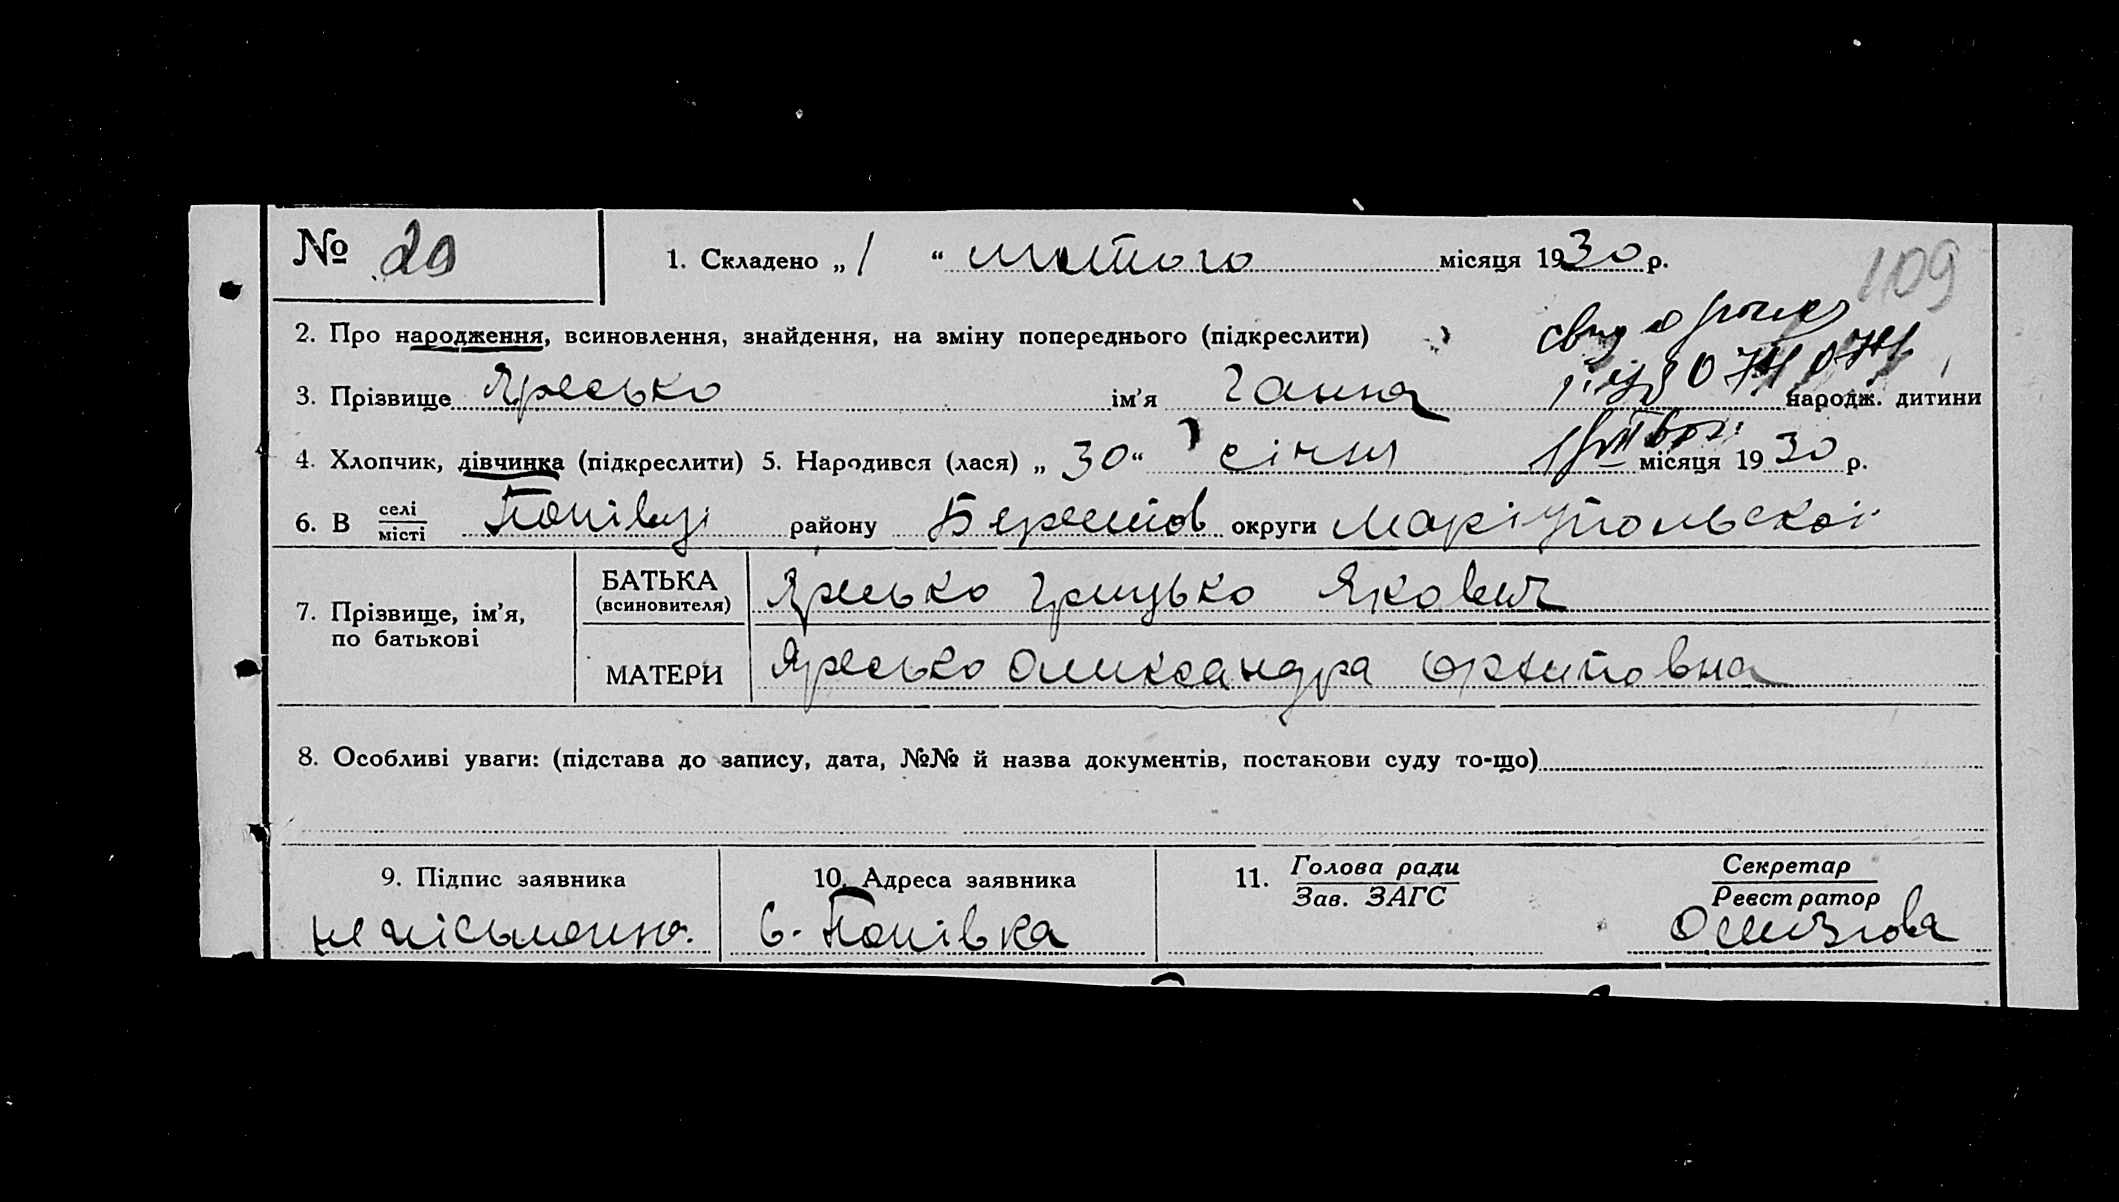 № 20 1. Складено „ 1 “ лютого місяця 1930 р.
109
2. Про народження, всиновлення, знайдення, на зміну попереднього (підкреслити)
3. Прізвище Яресько ім’я Ганна народж. дитини
4. Хлопчик, дівчинка (підкреслити) 5. Народився (лася) „ 30 “ січня місяця 1930 р.
6. В селі
місті Попівці району Берестов округи Маріупольскої
7. Прізвище, ім’я,
по батькові
БАТЬКА
(всиновителя) Яресько Грицько Якович
МАТЕРИ Яресько Олександра
8. Особливі уваги: (підстава до запису, дата, №№ й назва документів, постанови суду то-що)
9. Підпис заявника
неписьменна.
10. Адреса заявника
с. Попівка
11. Голова ради
Зав. ЗАГС
Секретар
Реєстратор